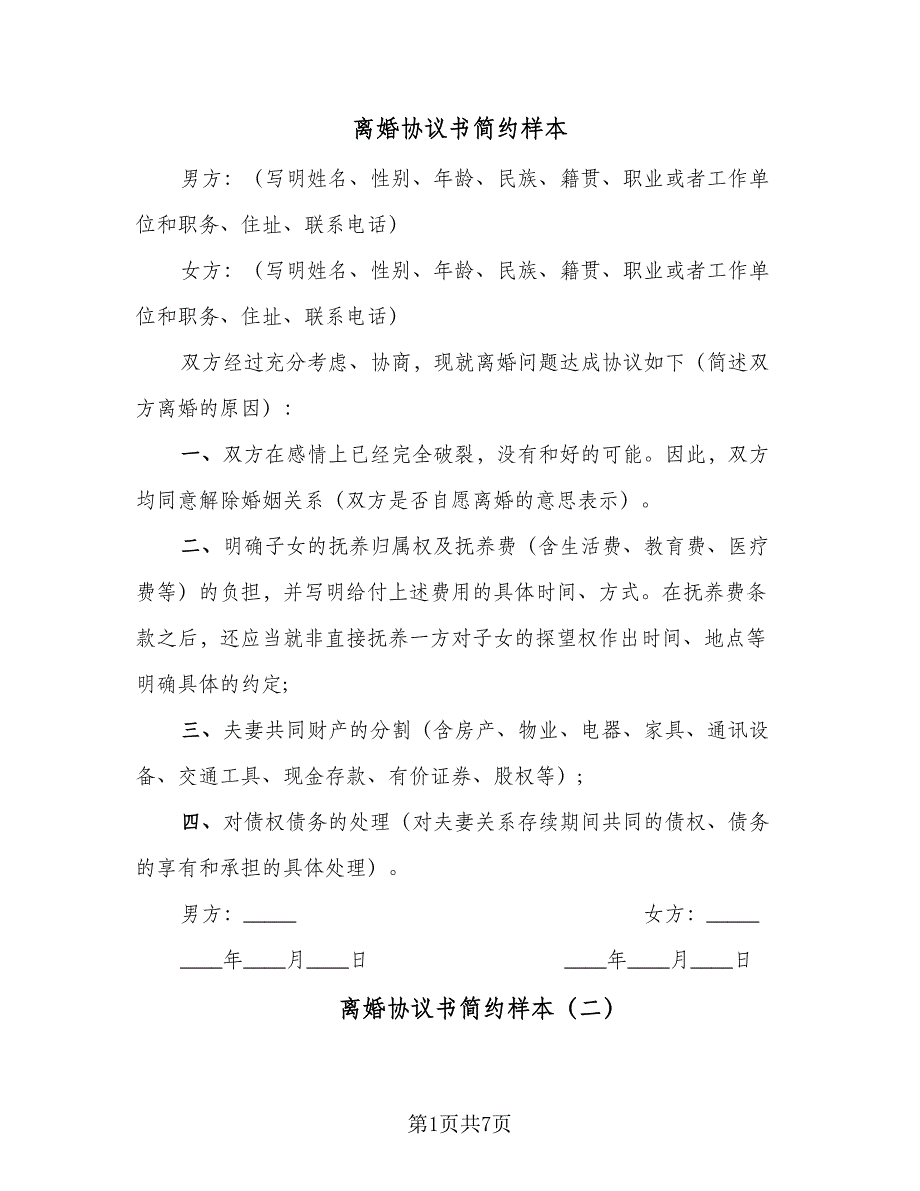 离婚协议书简约样本
男方：（写明姓名、性别、年龄、民族、籍贯、职业或者工作单
位和职务、住址、联系电话）
女方：（写明姓名、性别、年龄、民族、籍贯、职业或者工作单
位和职务、住址、联系电话）
双方经过充分考虑、协商，现就离婚问题达成协议如下（简述双
方离婚的原因）：
一、双方在感情上已经完全破裂，没有和好的可能。因此，双方
均同意解除婚姻关系（双方是否自愿离婚的意思表示）。
二、明确子女的抚养归属权及抚养费（含生活费、教育费、医疗
费等）的负担，并写明给付上述费用的具体时间、方式。在抚养费条
款之后，还应当就非直接抚养一方对子女的探望权作出时间、地点等
明确具体的约定;
三、夫妻共同财产的分割（含房产、物业、电器、家具、通讯设
备、交通工具、现金存款、有价证券、股权等）;
四、对债权债务的处理（对夫妻关系存续期间共同的债权、债务
的享有和承担的具体处理）。
男方：_____ 女方：_____
____年____月____日 ____年____月____日
离婚协议书简约样本（二）
第1页共7页